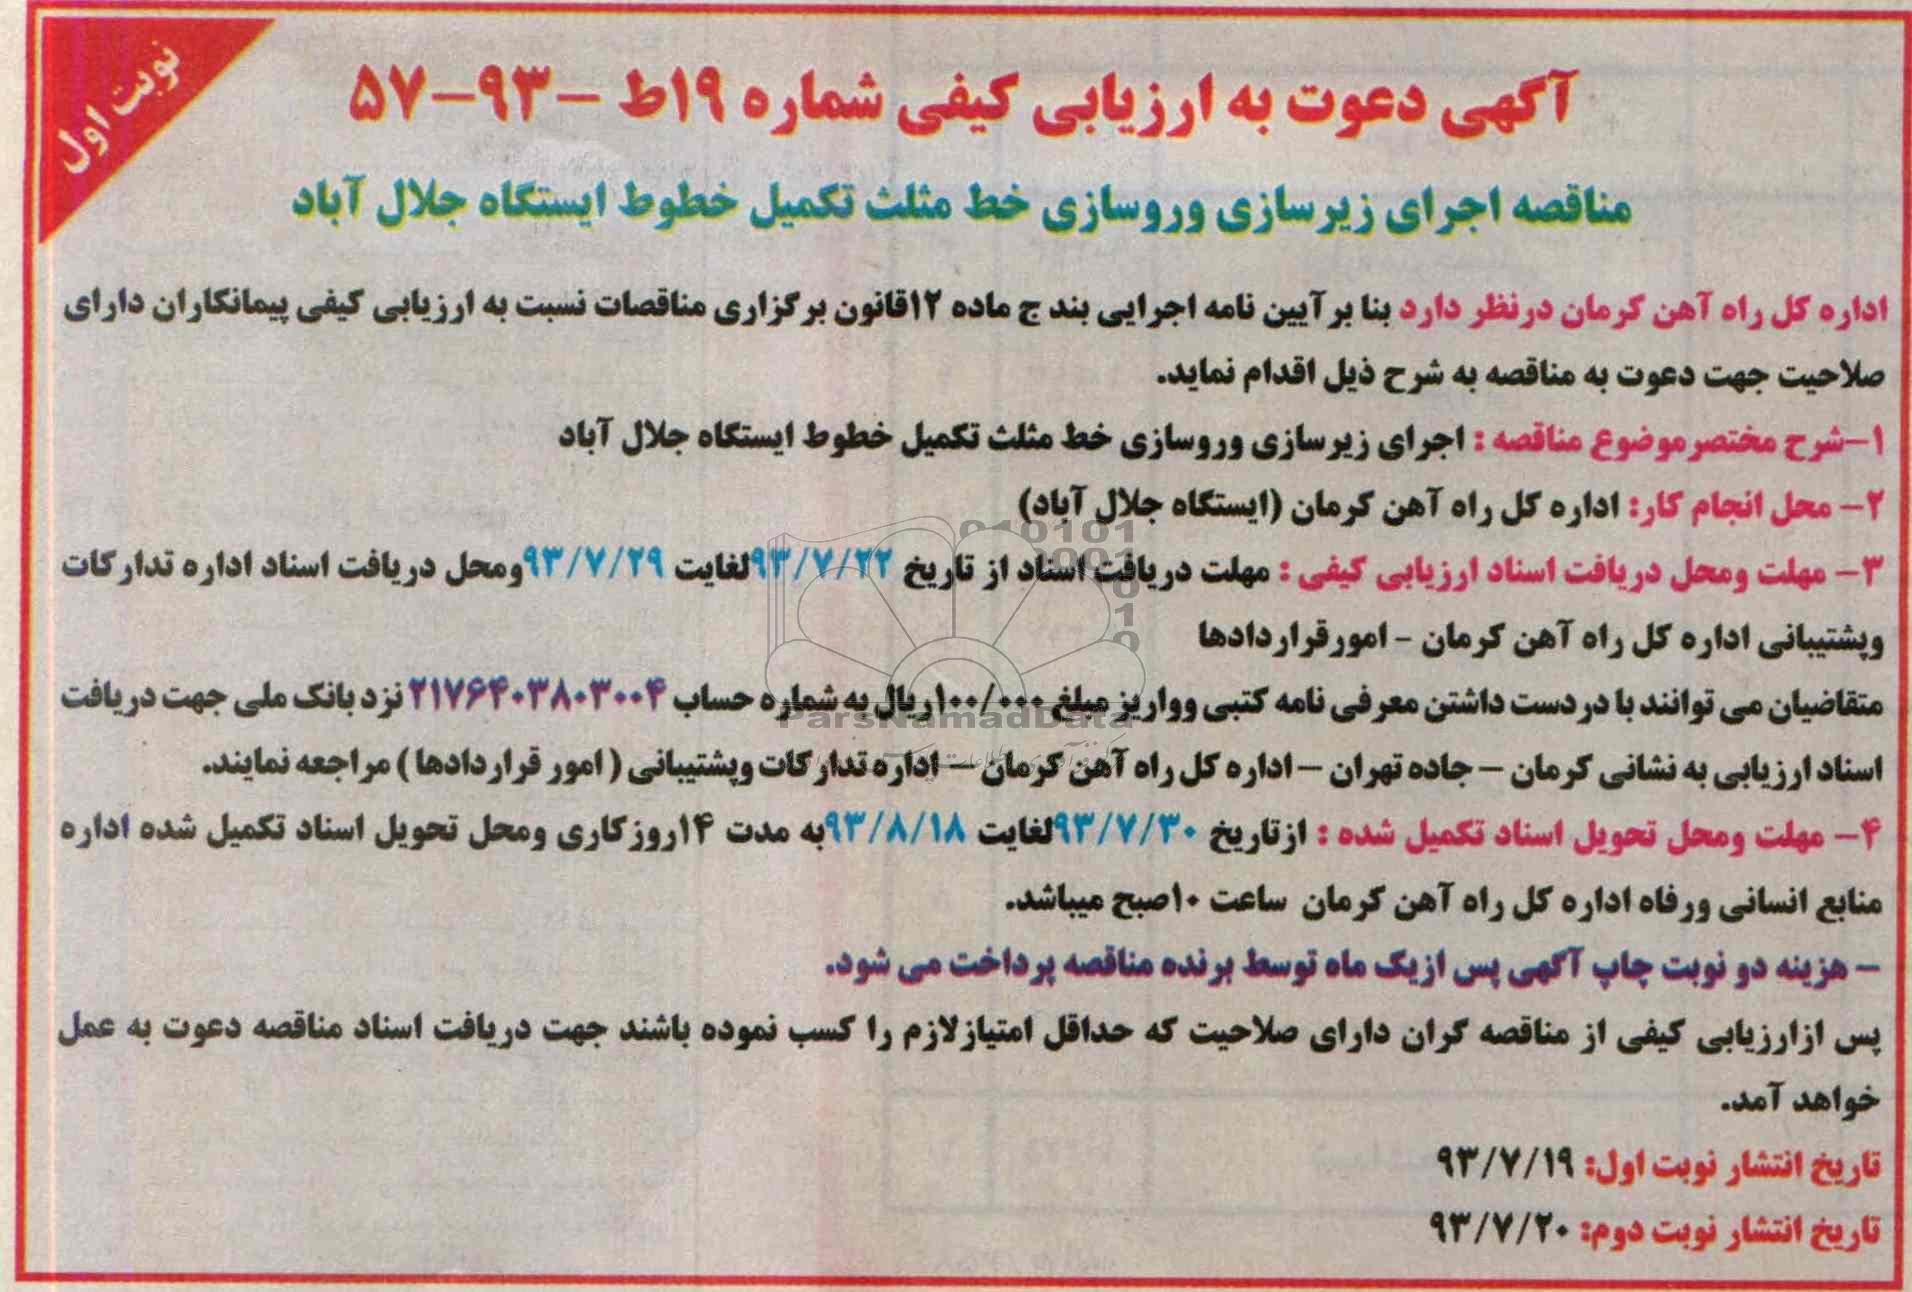 نوبت اول
آگهی دعوت به ارزیابی کیفی شماره ۱۹ط -۹۳-۵۷
مناقصه اجرای زیرسازی وروسازی خط مثلث تکمیل خطوط ایستگاه جلال آباد
اداره کل راه آهن کرمان درنظر دارد بنا بر آیین نامه اجرایی بند ج ماده ۱۲قانون برگزاری مناقصات نسبت به ارزیابی کیفی پیمانکاران دارای
صلاحیت جهت دعوت به مناقصه به شرح ذیل اقدام نماید.
۱-شرح مختصرموضوع مناقصه : اجرای زیرسازی وروسازی خط مثلث تکمیل خطوط ایستگاه جلال آباد
۲- محل انجام کار: اداره کل راه آهن کرمان (ایستگاه جلال آباد)
۳- مهلت ومحل دریافت اسناد ارزیابی کیفی : مهلت دریافت اسناد از تاریخ ۹۳/۷/۲۲لغایت ۹۳/۷/۲۹ومحل دریافت اسناد اداره تدارکات
وپشتیبانی اداره کل راه آهن کرمان - امورقراردادها
متقاضیان می توانند با در دست داشتن معرفی نامه کتبی وواریز مبلغ ۱۰۰/۰۰۰ریال به شماره حساب ۲۱۷۶۴۰۳۸۰۳۰۰۴ نزد بانک ملی جهت دریافت
اسناد ارزیابی به نشانی کرمان – جاده تهران – اداره کل راه آهن کرمان – اداره تدارکات وپشتیبانی ( امور قراردادها ) مراجعه نمایند.
۴- مهلت ومحل تحویل اسناد تکمیل شده : ازتاریخ ۹۳/۷/۳۰لغایت ۹۳/۸/۱۸به مدت ۱۴روزکاری ومحل تحویل اسناد تکمیل شده اداره
منابع انسانی ورفاه اداره کل راه آهن کرمان ساعت ۱۰صبح میباشد.
- هزینه دو نوبت چاپ آگهی پس ازیک ماه توسط برنده مناقصه پرداخت می شود.
پس ازارزیابی کیفی از مناقصه گران دارای صلاحیت که حداقل امتیازلازم را کسب نموده باشند جهت دریافت اسناد مناقصه دعوت به عمل
خواهد آمد.
تاریخ انتشار نوبت اول: ۹۳/۷/۱۹
تاریخ انتشار نوبت دوم: ۹۳/۷/۲۰
ParsNamadData